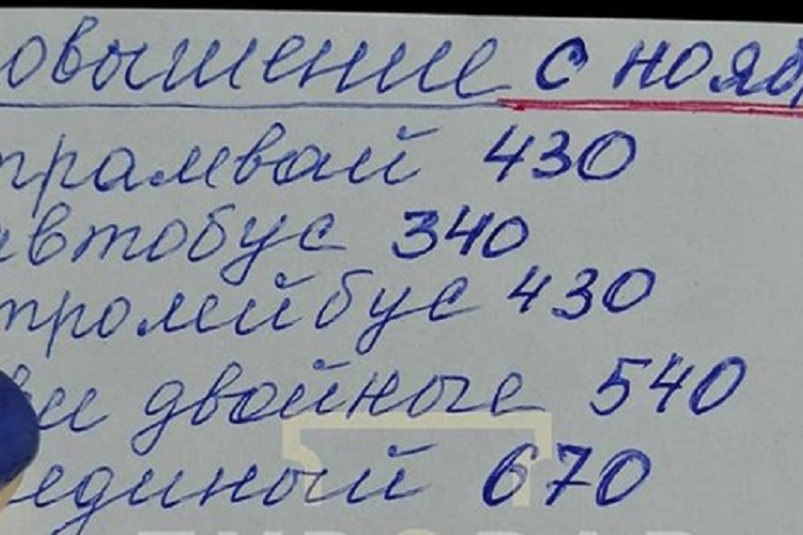 овышение с нояб
трамвай 430
автобус 340
тролейбус 430
двойные 540
единый 670